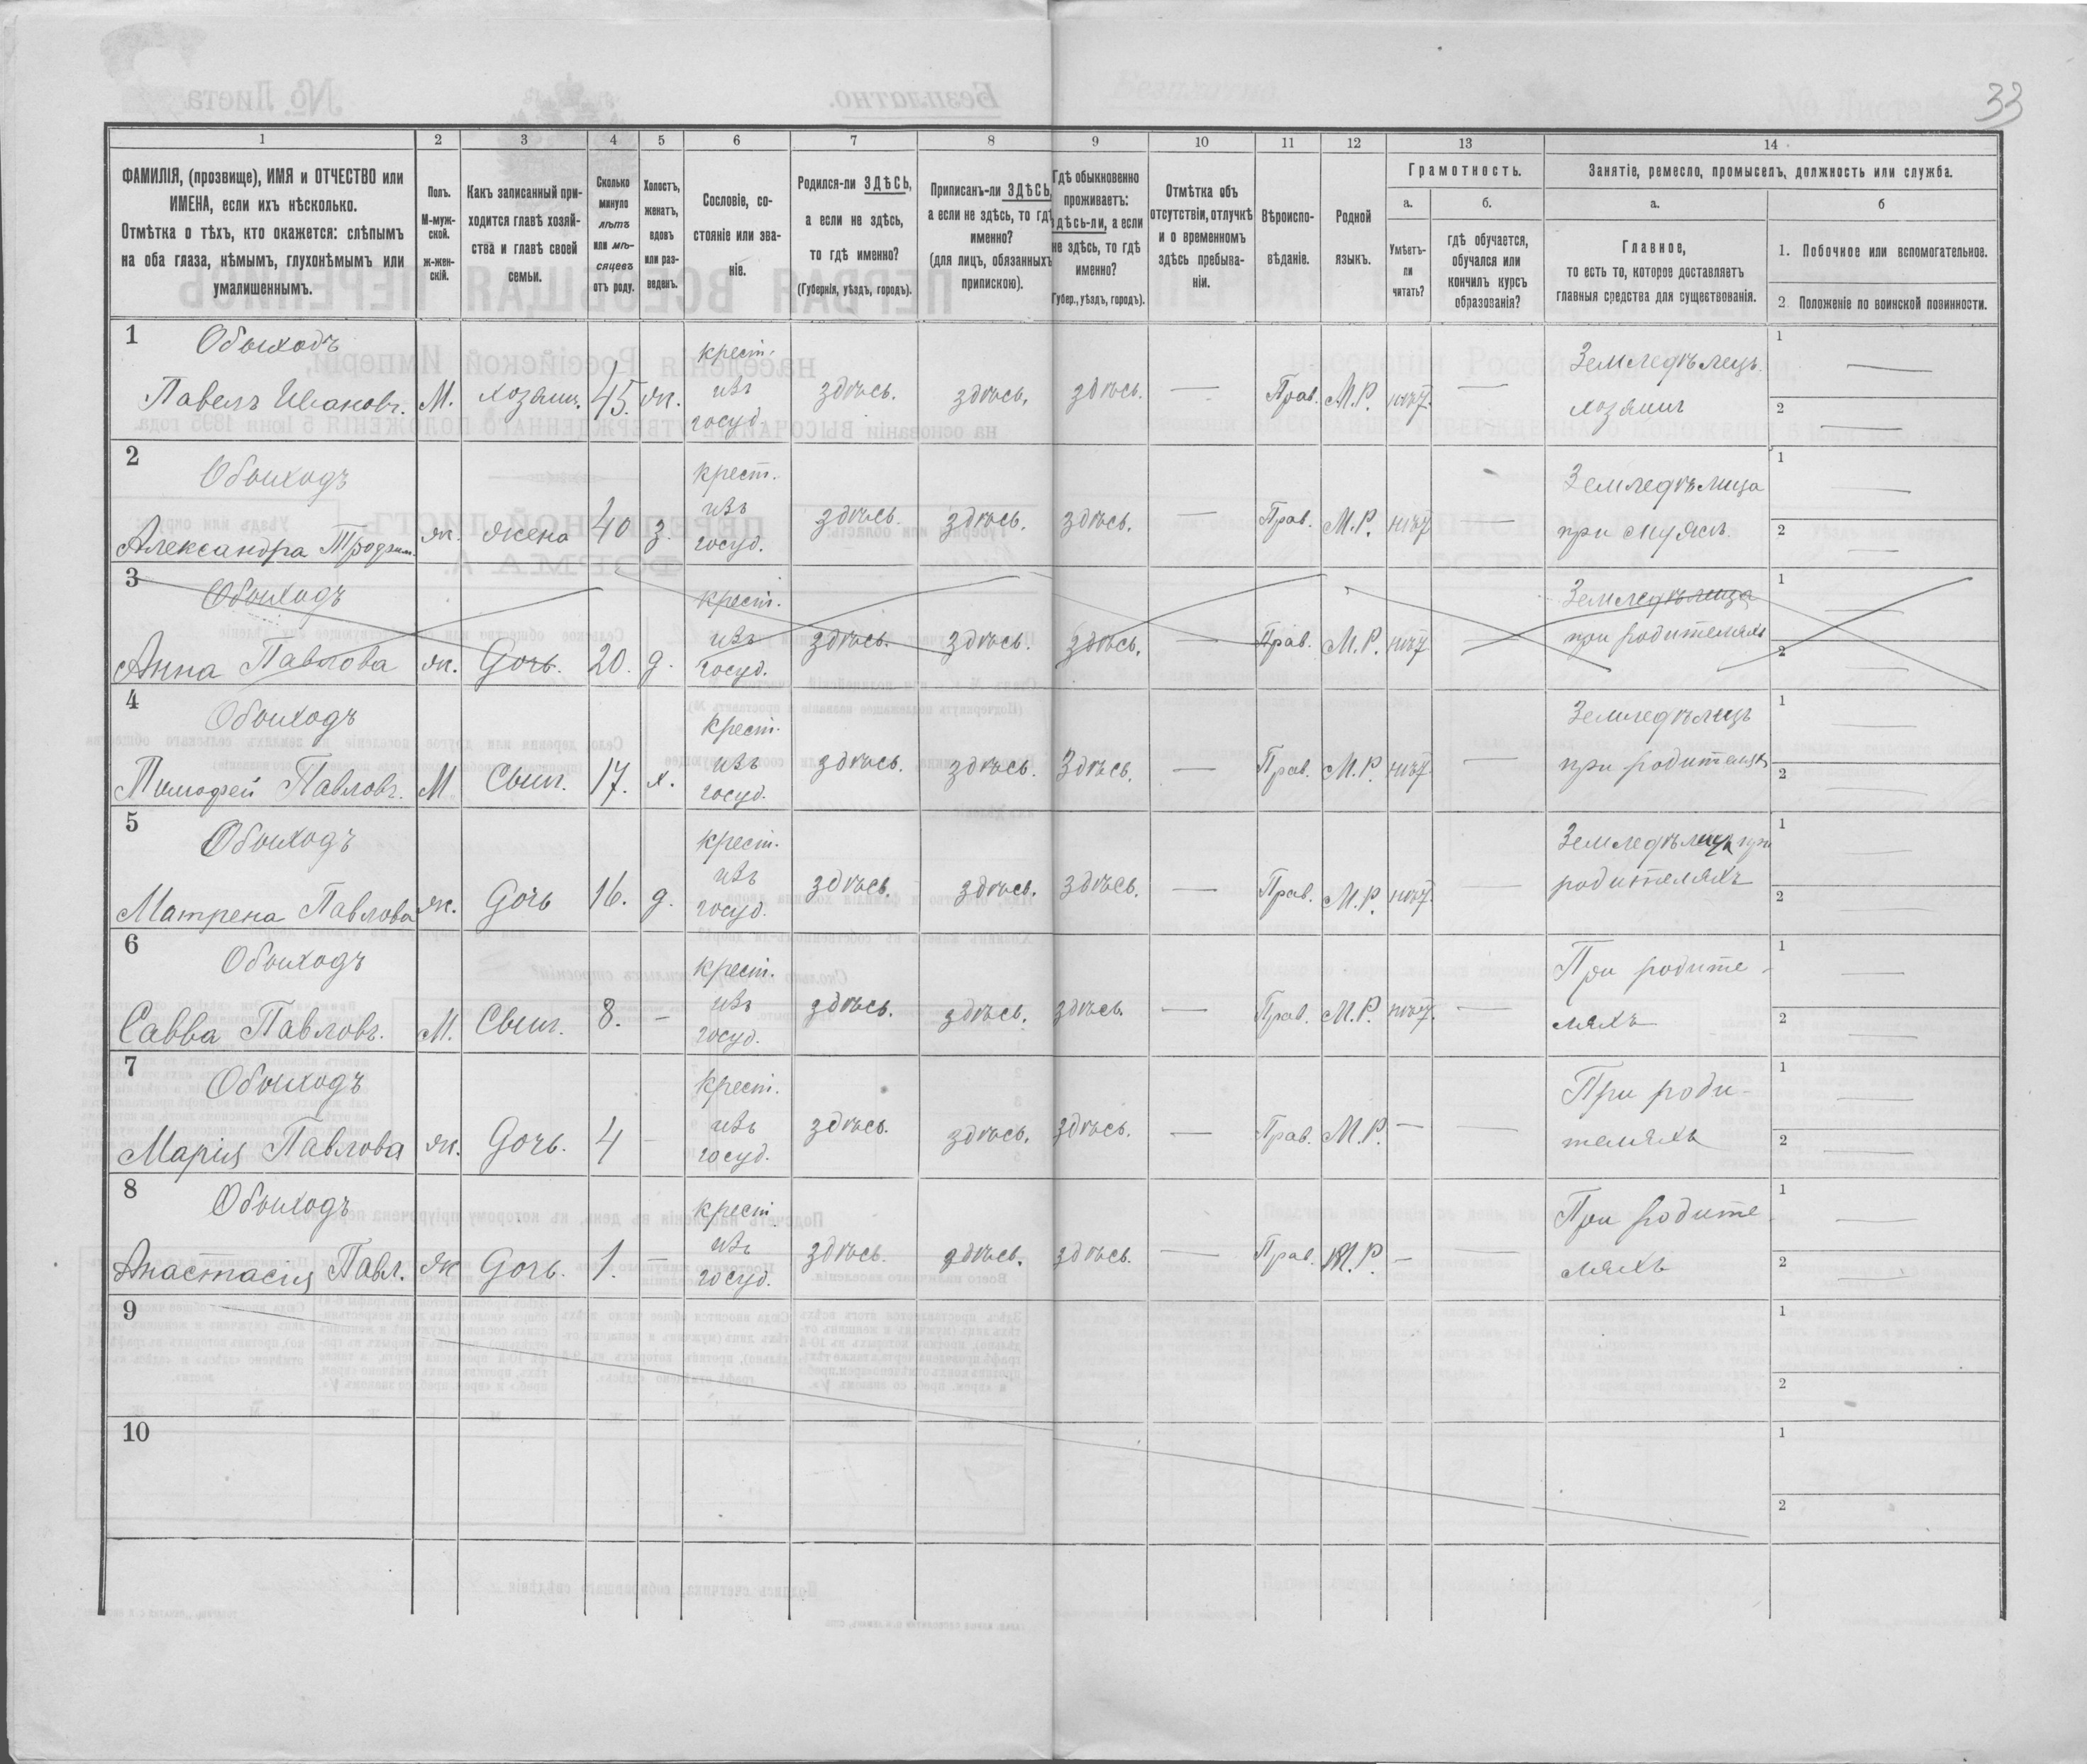 33
1 2 3 4 5 6 7 8 9 10 11 12 13 14
ФАМИЛІЯ, (прозвище), ИМЯ и ОТЧЕСТВО или
ИМЕНА, если ихъ нѣсколько.
Отмѣтка о тѣхъ, кто окажется: слѣпымъ
на оба глаза, нѣмымъ, глухонѣмымъ или
умалишеннымъ.
Полъ.
М-муж-
ской.
ж-жен-
скій.
Какъ записанный при-
ходится главѣ хозяй-
ства и главѣ своей
семьи.
Сколько
минуло
лѣтъ
или мѣ-
сяцевъ
отъ роду.
Холостъ,
женатъ,
вдовъ
или раз-
веденъ.
Сословіе, со-
стояніе или зва-
ніе.
Родился-ли ЗДѢСЬ,
а если не здѣсь,
то гдѣ именно?
(Губернія, уѣздъ, городъ).
Приписанъ-ли ЗДѢСЬ,
а если не здѣсь, то гдѣ
именно?
(для лицъ, обязанныхъ
припискою).
Гдѣ обыкновенно
проживаетъ:
здѣсь-ли, а если
не здѣсь, то гдѣ
именно?
(Губер., уѣздъ, городъ).
Отмѣтка объ
отсутствіи, отлучкѣ
и о временномъ
здѣсь пребыва-
ніи.
Вѣроиспо-
вѣданіе.
Родной
языкъ.
Грамотность.
а.
Умѣетъ-
ли
читать?
б.
гдѣ обучается,
обучался или
кончилъ курсъ
образованія?
Занятіе, ремесло, промыселъ, должность или служба.
а.
Главное,
то есть то, которое доставляетъ
главныя средства для существованія.
б
1. Побочное или вспомогательное.
2. Положеніе по воинской повинности.
1 Обыходъ крест. Земледѣлецъ 1 —
Павелъ Ивановъ. М. хозяин. 45. ж. изъ здѣсь. здѣсь. здѣсь. — Прав. М.Р. нѣт. — хозяинъ 2 —
госуд.
2 Обыходъ крест. Земледѣлица 1 —
Александра ж. жена 40 з. изъ здѣсь. здѣсь. здѣсь. — Прав. М.Р. нѣт — при мужѣ. 2 —
госуд.
3 Обыходъ крест. Земледѣлица 1 —
Анна Павлова ж. Дочь. 20. д. изъ здѣсь. здѣсь. здѣсь. — Прав. М.Р. нѣт — при родителяхъ 2 —
госуд.
4 Обыходъ крест. Земледѣлецъ 1 —
Тимофей Павловъ. М Сынъ. 17. х. изъ здѣсь. здѣсь. здѣсь. — Прав. М.Р. нѣт — при родителяхъ 2 —
госуд.
5 Обыходъ крест. Земледѣлица при 1 —
Матрена Павлова ж. Дочь 16. д. изъ здѣсь. здѣсь. здѣсь. — Прав. М.Р. нѣт. — родителяхъ 2 —
госуд.
6 Обыходъ крест. При родите- 1 —
Савва Павловъ. М. Сынъ. 8. — изъ здѣсь. здѣсь. здѣсь. — Прав. М.Р. нѣт. — ляхъ 2 —
госуд.
7 Обыходъ крест. При роди- 1 —
Марія Павлова ж. Дочь. 4 — изъ здѣсь. здѣсь. здѣсь. — Прав. М.Р. — — теляхъ 2 —
госуд.
8 Обыходъ крест. При родите 1 —
Анастасія Павл. ж Дочь. 1. — изъ здѣсь. здѣсь. здѣсь. — Прав. М.Р. — — ляхъ 2 —
госуд.
9 1
2
10 1
2